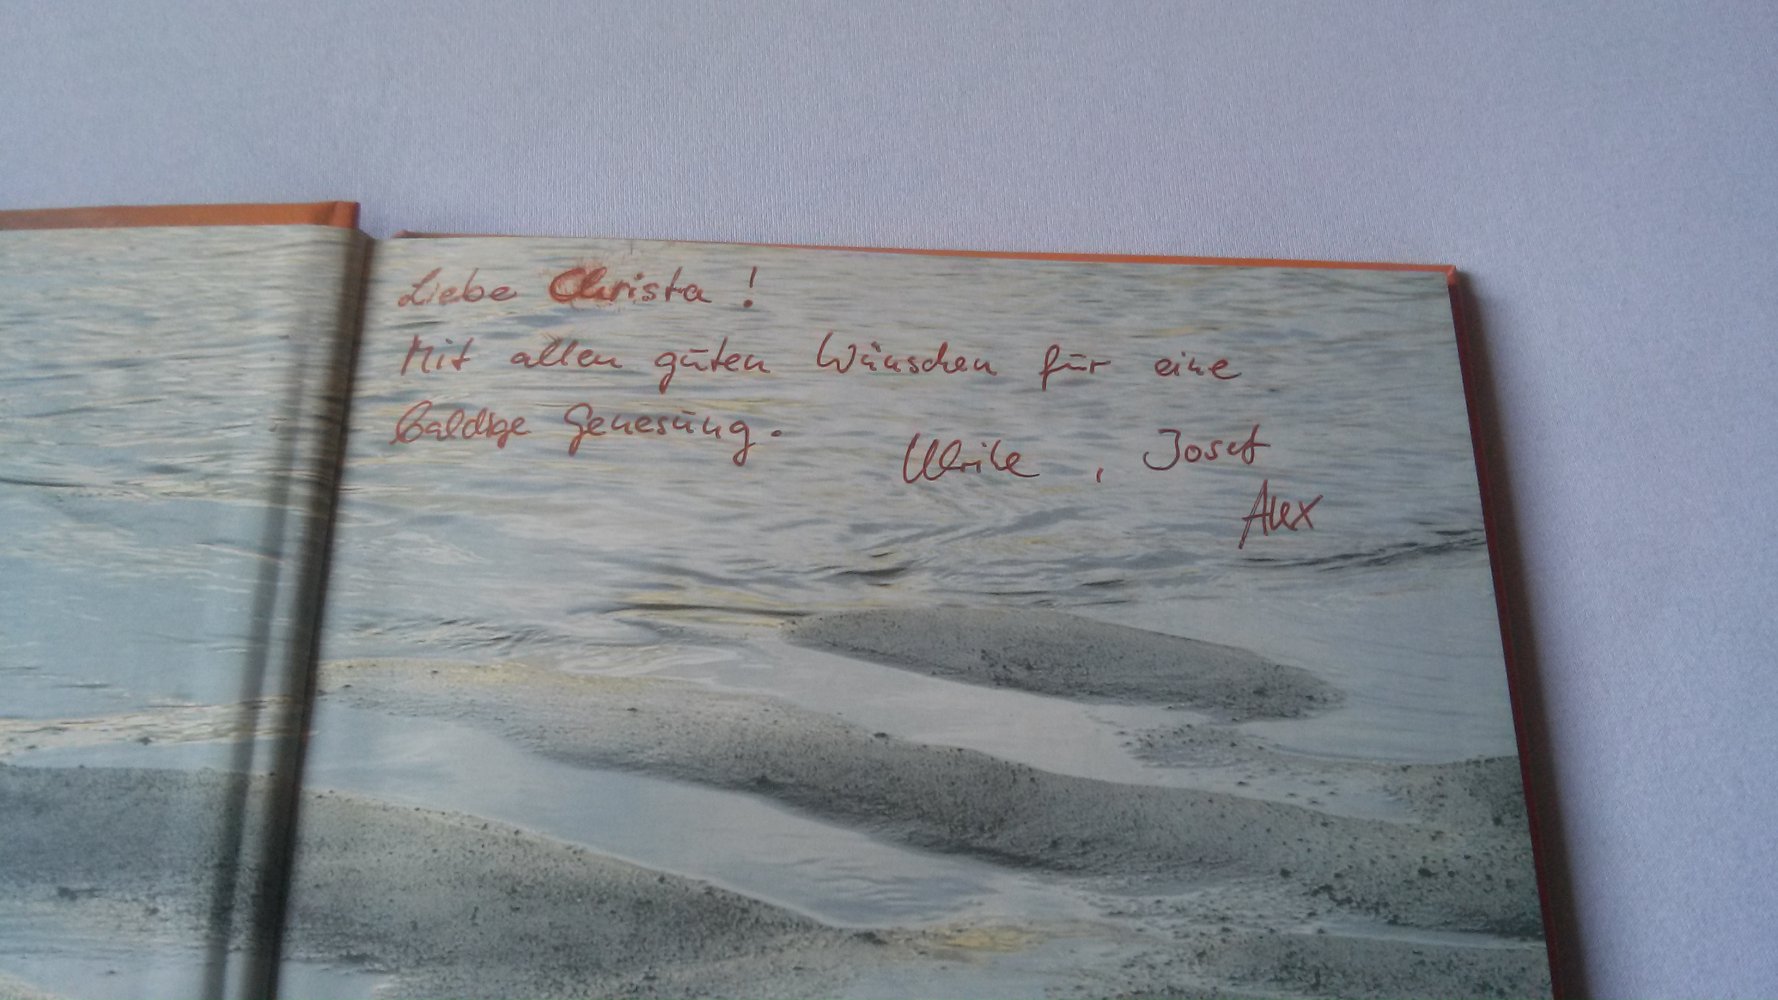 Liebe Christa!
Mit allen guten Wünschen für eine
baldige Genesung.
Ulrike, Josef
Alex